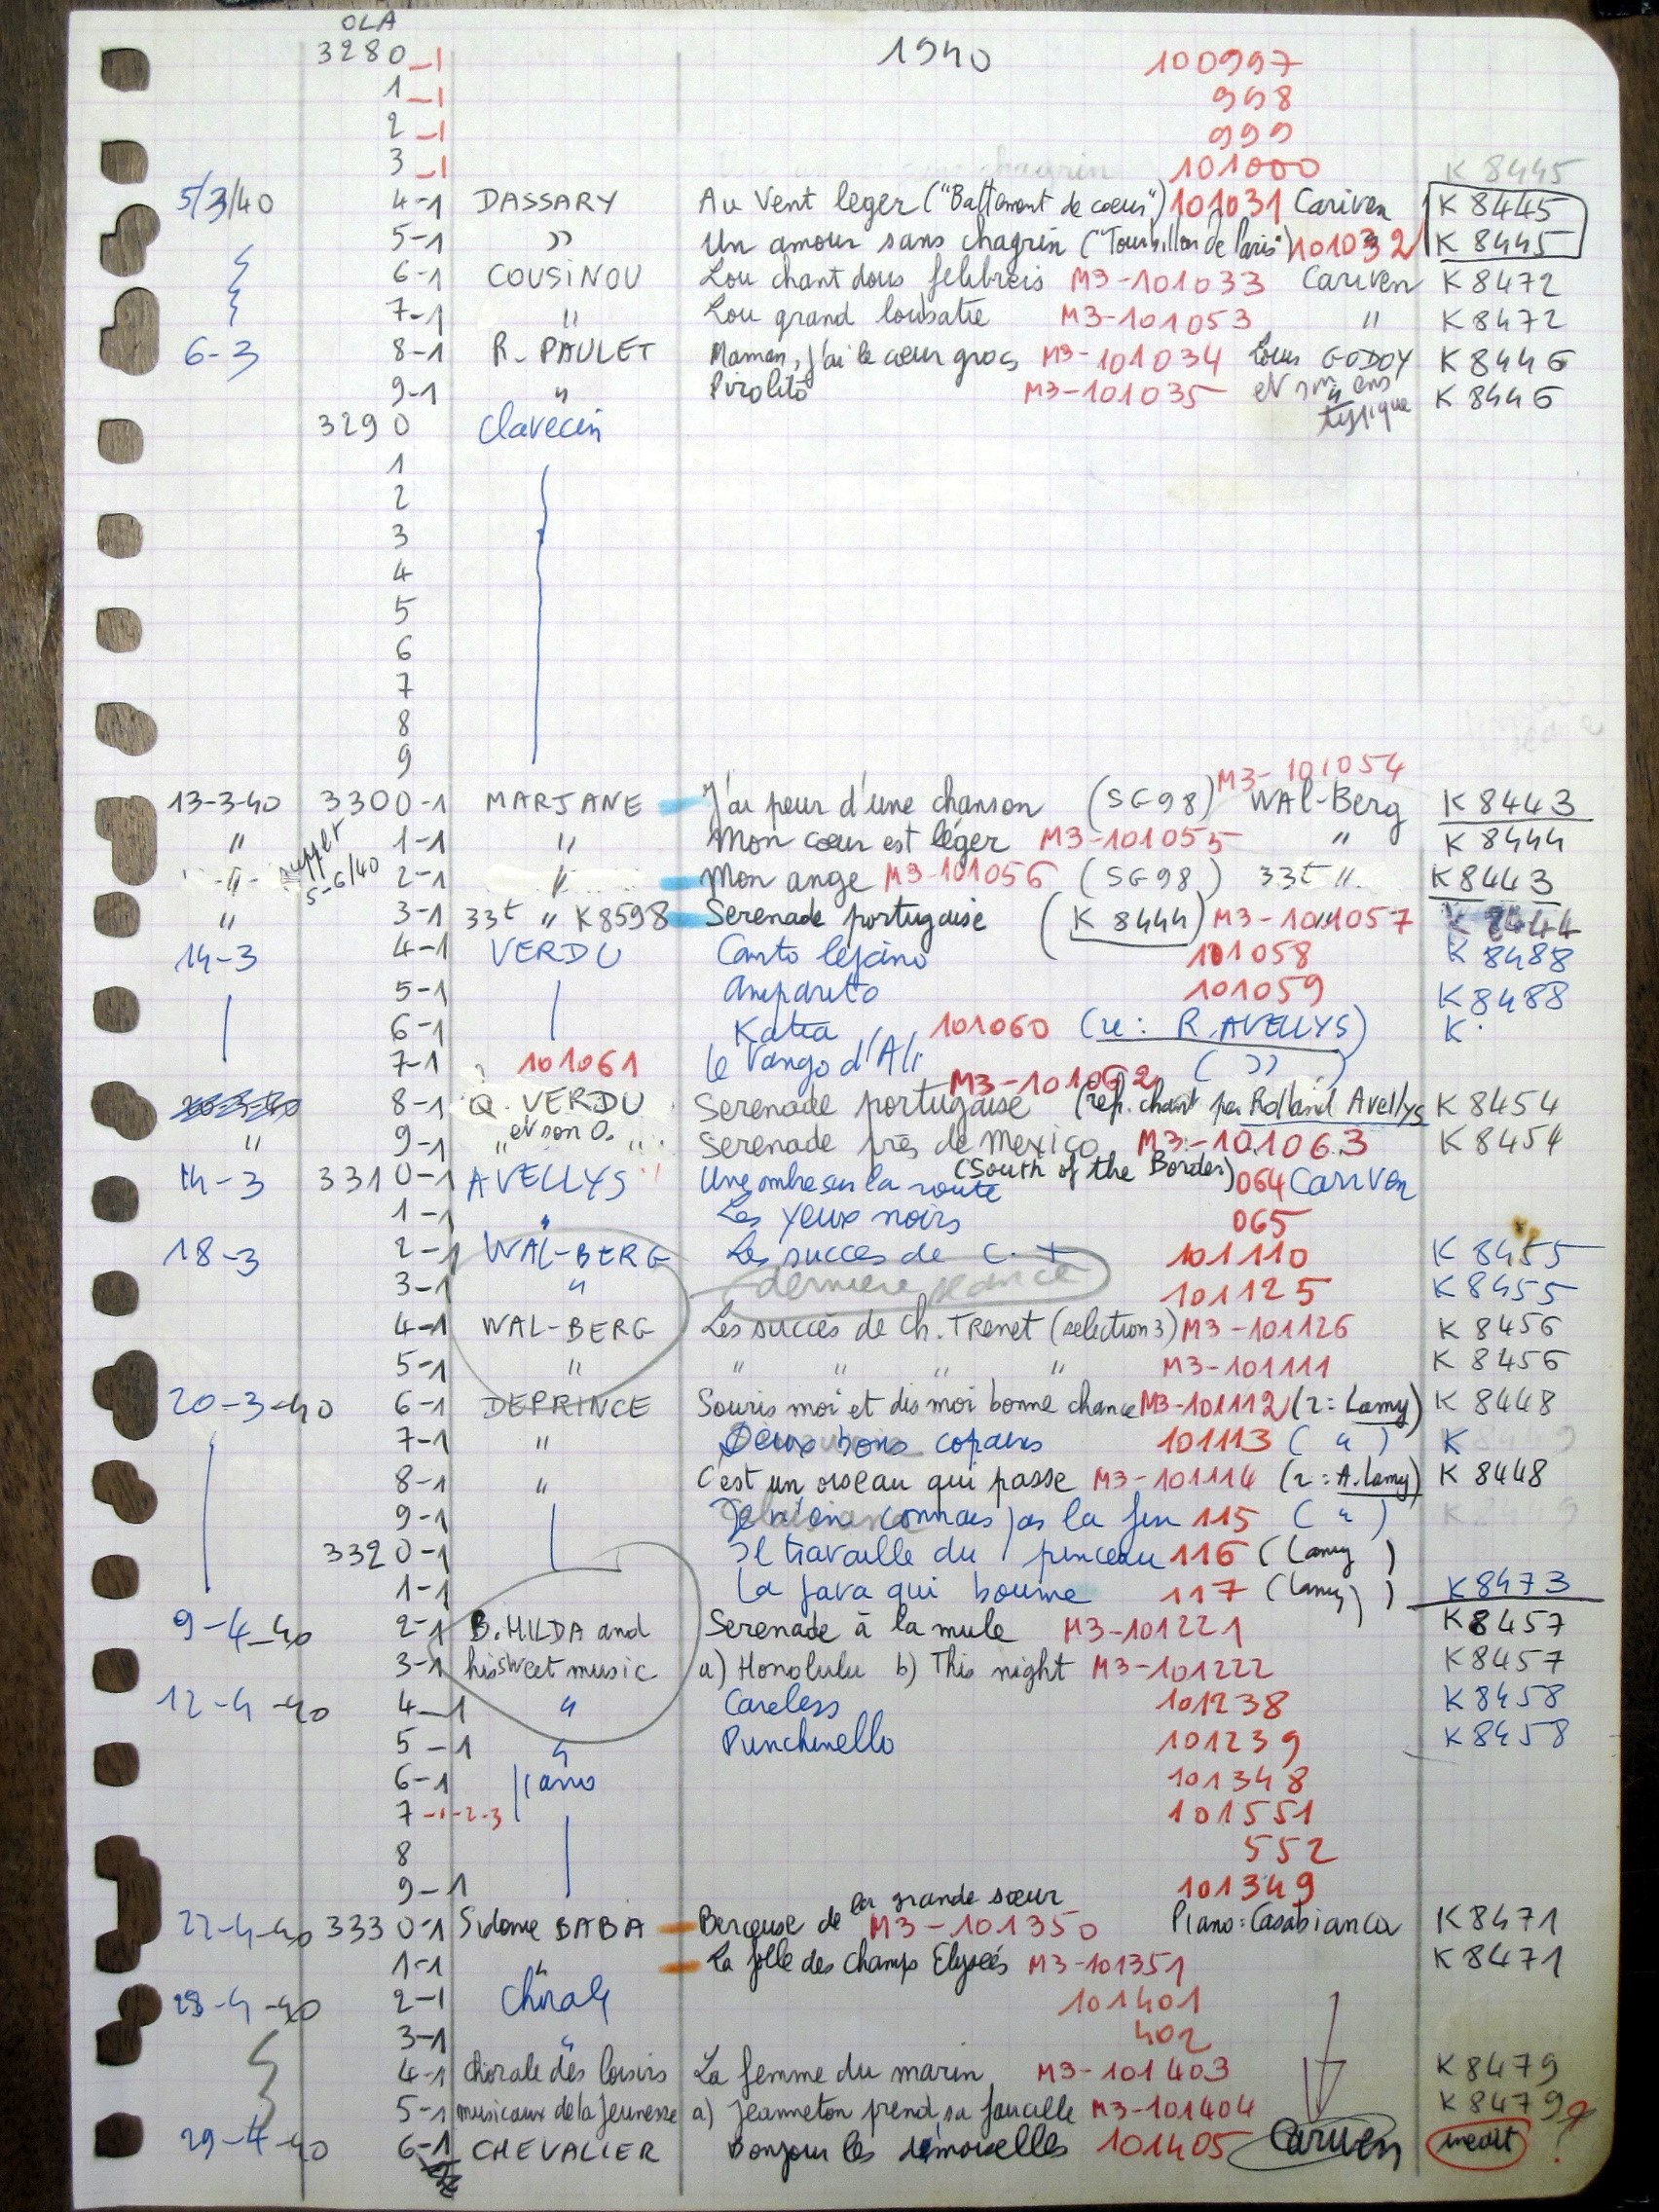 OLA
3280-1 1940 100997
1-1 998
2-1 999
3-1 101000 K 8445
5/3/40 4-1 DASSARY Au Vent leger ("Battement de coeur") 101031 Cariven K 8445
5-1 " Un amour sans chagrin ("Tourbillon de Paris") 101032 K 8445
6-1 COUSINOU Lou chant dous felibreis M3-101033 Cariven K 8472
7-1 " Lou grand loubatie M3-101053 " K 8472
6-3 8-1 R. PAULET Maman, j'ai le cœur gros M3-101034 Louis GODOY K 8446
9-1 " Pirolito M3-101035 et son ens typique K 8446
3290 Clavecin
1
2
3
4
5
6
7
8
9
M3-101054
13-3-40 3300-1 MARJANE J'ai peur d'une chanson (SG98) WAL-Berg K 8443
" 1-1 " Mon cœur est léger M3-101055 " K 8444
" 5-6/40 2-1 " Mon ange M3-101056 (SG98) 33t " K 8443
" 3-1 33t " K8598 Serenade portugaise (K 8444) M3-101057 K 8444
14-3 4-1 VERDU Canto lejano 101058 K 8488
5-1 Amparito 101059 K 8488
6-1 Katia 101060 (r: R. AVELLYS) K
7-1 101061 Le Tango d'Ali ( " )
M3-101062
8-1 Q. VERDU Serenade portugaise (ref. chant par Rolland Avellys K 8454
" 9-1 " et son O. " Serenade près de Mexico M3-101063 K 8454
(South of the Border)
14-3 3310-1 AVELLYS Une ombre sur la route 064 Cariven
1-1 " Les yeux noirs 065
18-3 2-1 WAL-BERG Les succes de C. T 101110 K 8455
3-1 " derniere seance 101125 K 8455
4-1 WAL-BERG Les succès de Ch. Trenet (selection 3) M3-101126 K 8456
5-1 " " " " " M3-101111 K 8456
20-3-40 6-1 DEPRINCE Souris moi et dis moi bonne chance M3-101112 (r: Lamy) K 8448
7-1 " Deux bons copains 101113 ( " ) K
8-1 " C'est un oiseau qui passe M3-101114 (r: A. Lamy) K 8448
9-1 Je n'en connais pas la fin 115 ( " )
3320-1 Il travaille du pinceau 116 (Lamy)
1-1 La java qui bourre 117 (Lamy) K 8473
9-4-40 2-1 B. HILDA and Serenade à la mule M3-101221 K 8457
3-1 his sweet music a) Honolulu b) This night M3-101222 K 8457
12-4-40 4-1 " Careless 101238 K 8458
5-1 " Punchinello 101239 K 8458
6-1 piano 101348
7-1-2-3 101551
8 552
9-1 101349
la grande sœur
22-4-40 3330-1 Sidonie BABA Berceuse de M3-101350 Piano: Casabianca K 8471
1-1 " La folle des Champs Elysées M3-101351 K 8471
28-4-40 2-1 Chorale 101401
3-1 " 402
4-1 Chorale des loisirs La femme du marin M3-101403 K 8479
5-1 musicaux de la Jeunesse a) Jeanneton prend sa faucille M3-101404 K 8479 ?
29-4-40 6-1 CHEVALIER Bonjour les demoiselles 101405 Cariven inedit ?